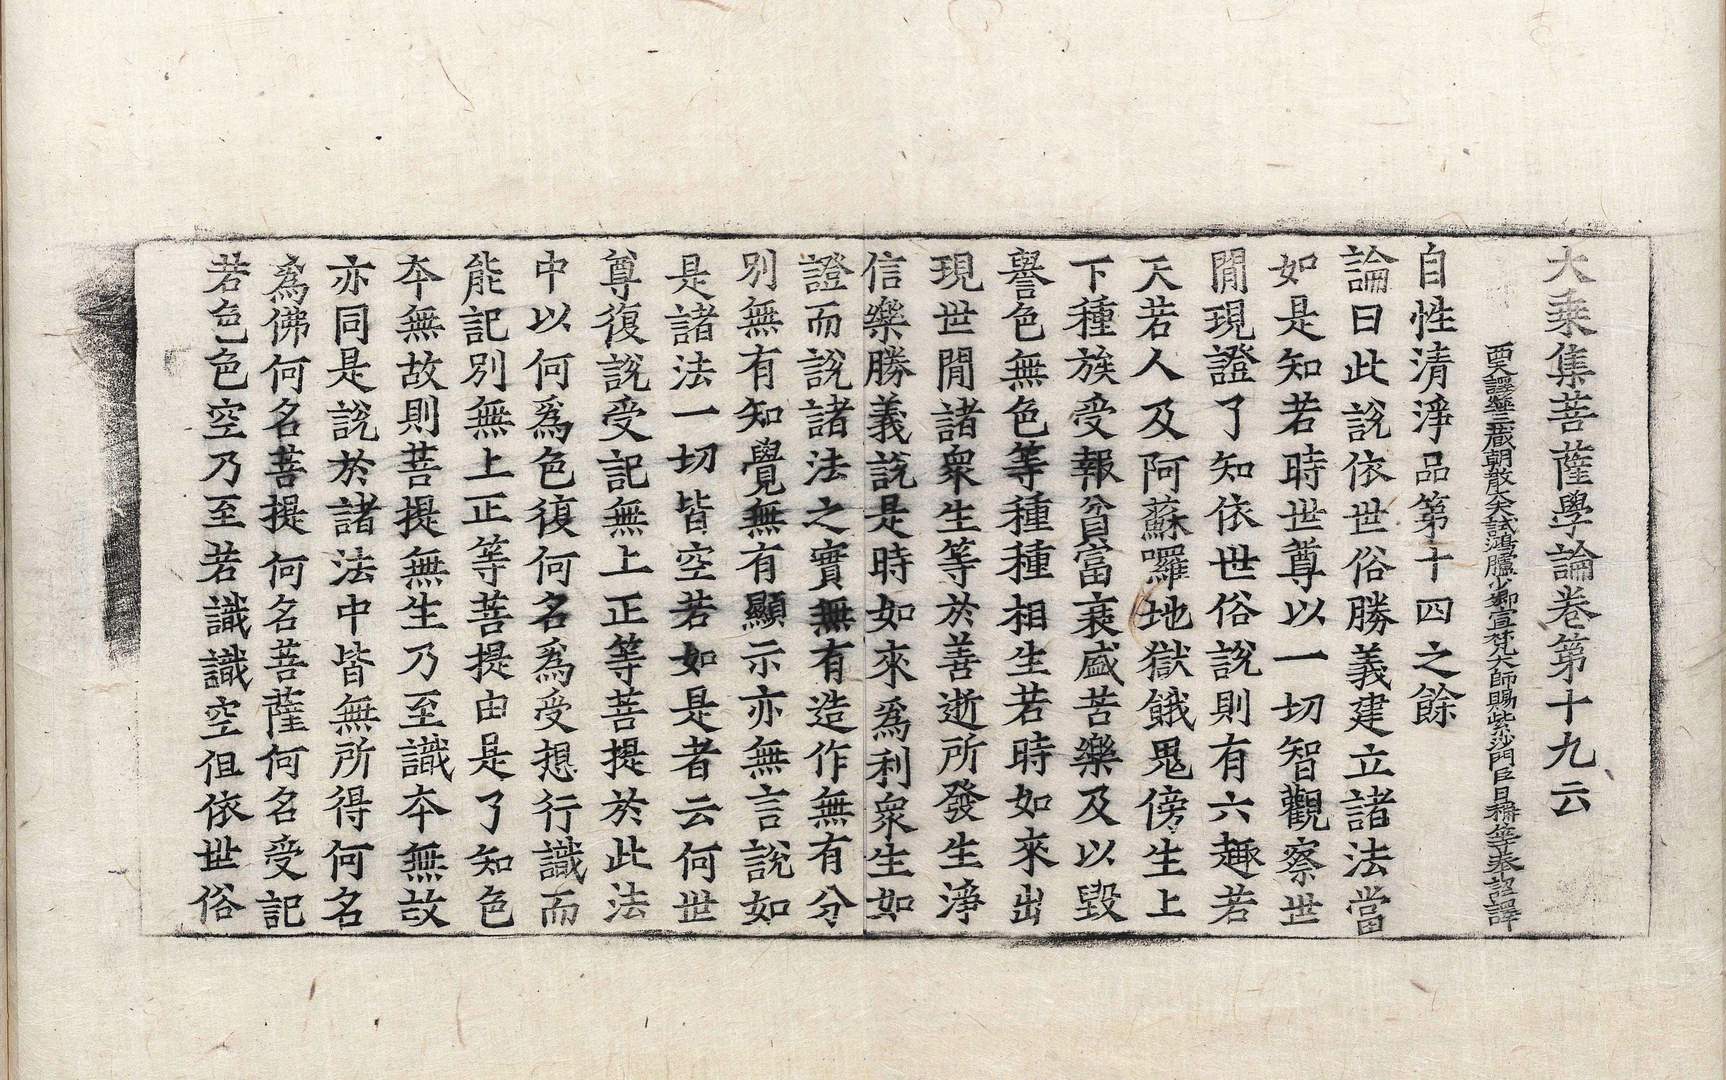 大乘集菩薩學論卷第十九 云
西天譯經三藏朝散大夫試鴻臚少卿宣梵大師賜紫沙門臣日稱等奉詔譯
自性清淨品第十四之餘
論曰此說依世俗勝義建立諸法當
如是知若時世尊以一切智觀察世
間現證了知依世俗說則有六趣若
天若人及阿蘇囉地獄餓鬼傍生上
下種族受報貧富衰盛苦樂及以毀
譽色無色等種種相生若時如來出
現世間諸衆生等於善逝所發生淨
信樂勝義說是時如來爲利衆生如
證而說諸法之實無有造作無有分
別無有知覺無有顯示亦無言說如
是諸法一切皆空若如是者云何世
尊復說受記無上正等菩提於此法
中以何爲色復何名爲受想行識而
能記別無上正等菩提由是了知色
本無故則菩提無生乃至識本無故
亦同是說於諸法中皆無所得何名
爲佛何名菩提何名菩薩何名受記
若色色空乃至若識識空但依世俗